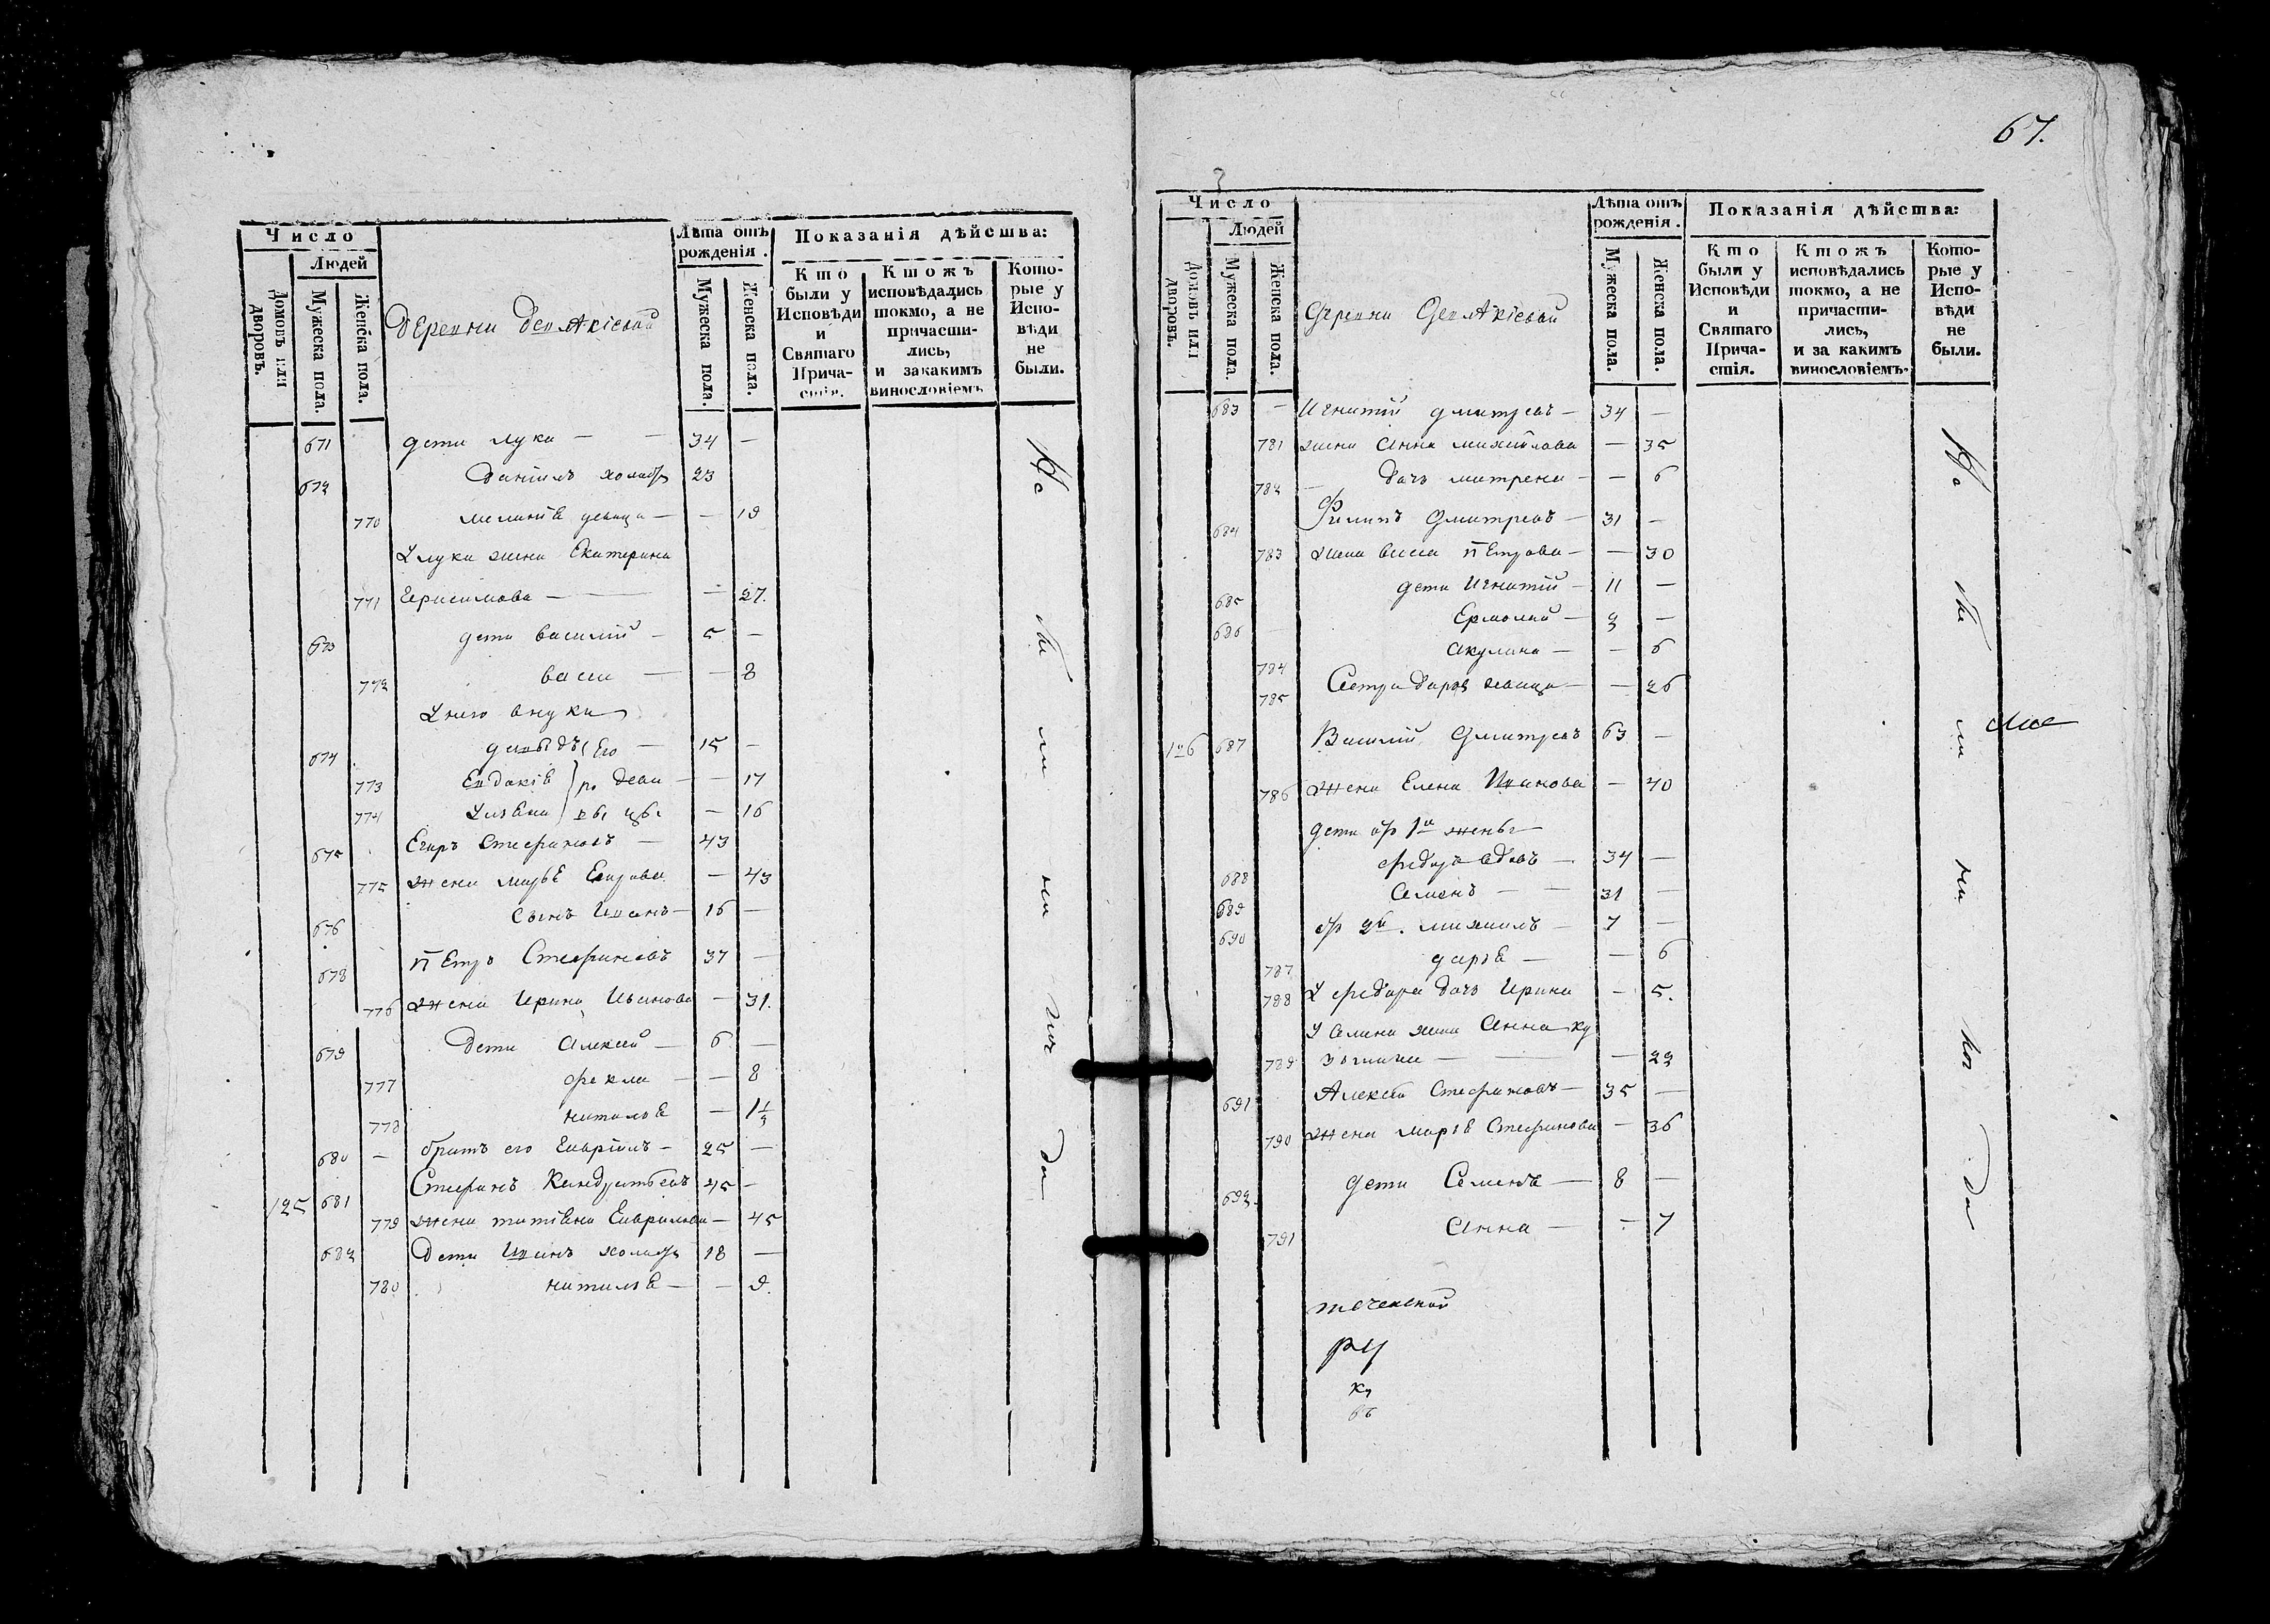 Число
Людей
Домовъ или дворовъ.
Мужеска пола.
Женска пола.
Деревни
Лѣта отъ рожденія.
Мужеска пола.
Женска пола.
Показанія дѣйства:
Кто были у Исповѣди и Святаго Причастія.
Ктожъ исповѣдались токмо, а не причастились, и за какимъ винословіемъ
Которые у Исповѣди не были.
671 дети лука — — 34 —
672 данiилъ холостъ 23
770 меланiя девица — — 19
У луки жена Екатерина
771 Герасимова — — 27.
673 дети василiй — 5 —
772 васа — — 8
У него внуки
674 давыдъ Его — 15 —
773 Евдокiя ро деви — — 17
774 Ульяна — 16
675 Егоръ Стефановъ — 43
775 жена марья Егорова — 43
676 сынъ Иванъ — 16 —
678 Петръ Стефановъ 37 —
776 жена Ирина Иванова — 31.
679 дети Алексей — 6 —
777 фекла — — 8
778 наталья — 1 1/2
680 — братъ его Гаврiилъ — 25 —
125 681 Стефанъ Кондратьевъ 45 —
779 жена татiяна Гаврилова — 45
682 дети Иванъ холостъ 18 —
780 наталья — — 9.
Не бы ли ни ког да
67.
Число
Людей
Домовъ или дворовъ.
Мужеска пола.
Женска пола.
Деревни
Лѣта отъ рожденія.
Мужеска пола.
Женска пола.
Показанія дѣйства:
Кто были у Исповѣди и Святаго Причастія.
Ктожъ исповѣдались токмо, а не причастились, и за какимъ винословіемъ.
Которые у Исповѣди не были.
683 — Игнатiй дмитревъ — 34 —
781 жена Анна михайлова — 35
782 дочь матрена — — 6
684 Филипъ Дмитревъ — 31 —
783 жена васса Петрова — — 30
685 дети Игнатiй — 11 —
686 Ермолай — 9 —
784 акулина — — 6
785 Сестра дарья девица — — 26
126 687 Василiй Дмитревъ 63 —
786 жена Елена Иванова — 40
дети от 1й жены
688 федоръ вдовъ — 34 —
689 Семенъ — — 31 —
690 от 2й. михаилъ — 7 —
787 дарья — — 6
788 У федора дочь Ирина — 5.
У Семена жена Анна ку
789 зьмина — — 22
691 Алексей Стефановъ — 35 —
790 жена марья Стефанова — 36
692 дети Семенъ — 8 —
791 Анна — — 7
Не бы ли ни ког да